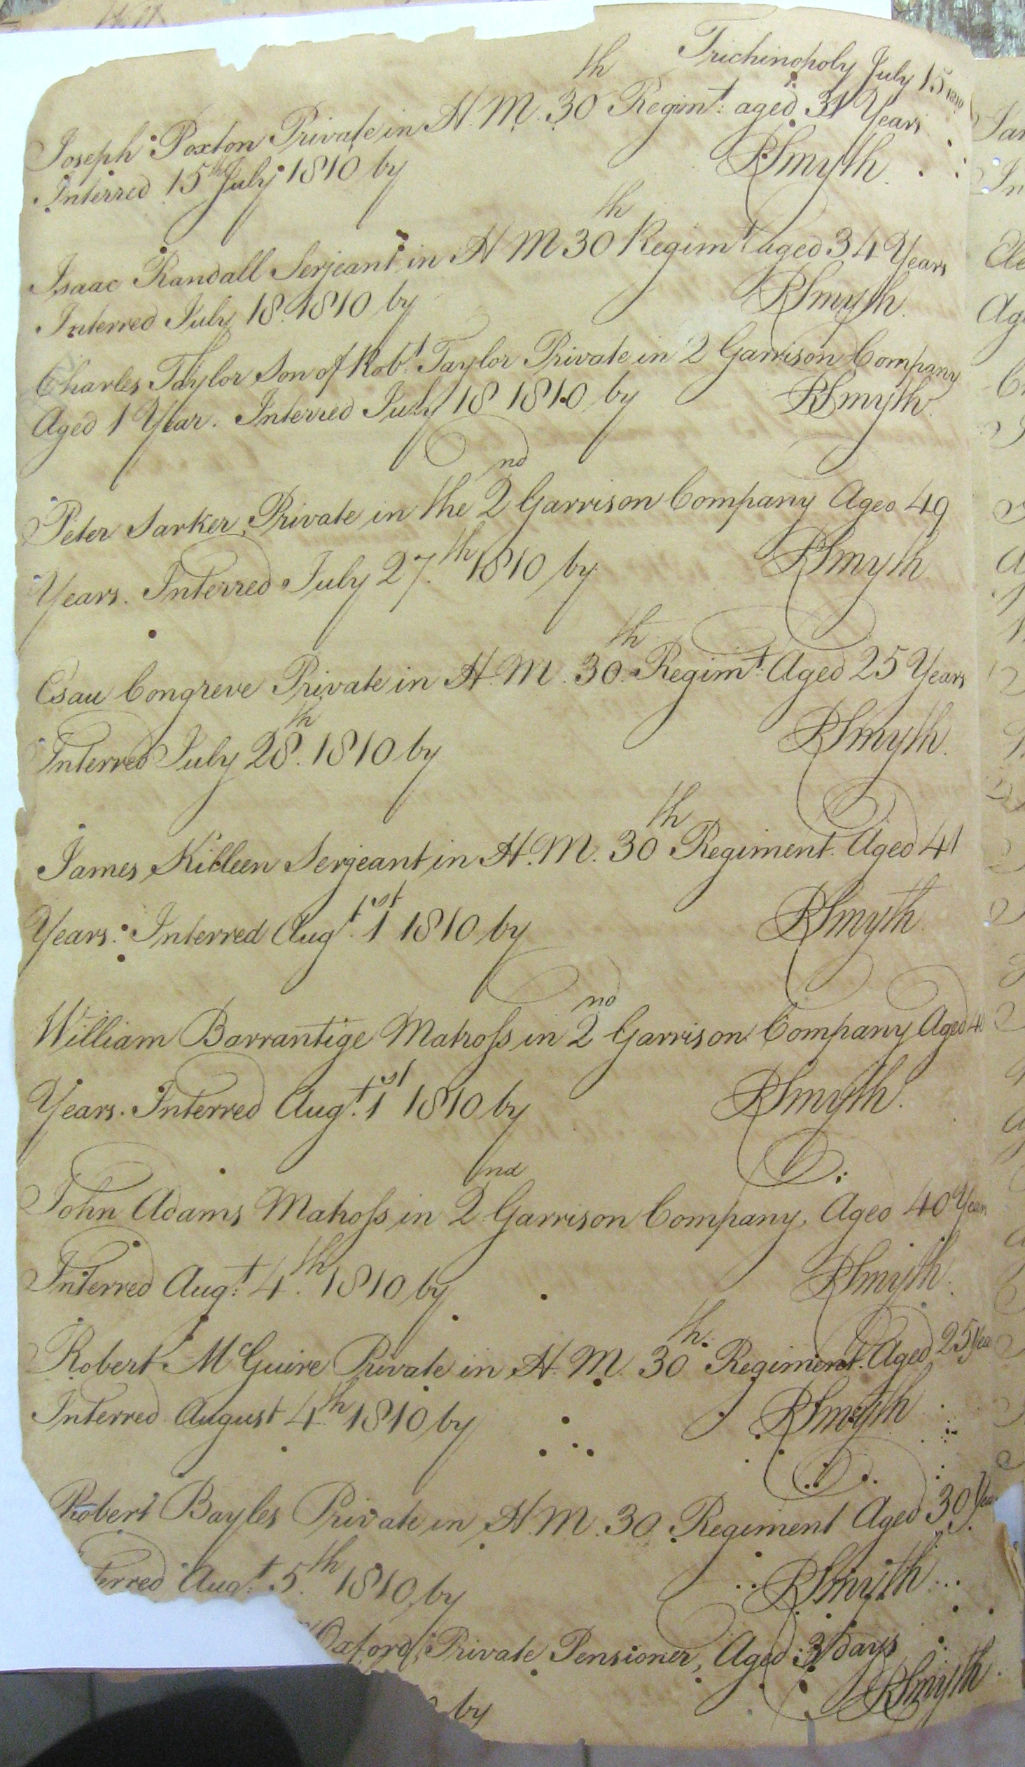 Trichinopoly July 15 1810
Joseph Poxton Private in H. M. 30th Regimt. aged 31 Years
Interred 15th July 1810 by RSmyth.
Isaac Randall Serjeant in H M 30th Regimt aged 34 Years
Interred July 18. 1810 by RSmyth.
Charles Taylor Son of Robt. Taylor Private in 2 Garrison Company
Aged 1 Year. Interred July 18 1810 by RSmyth.
Peter Sarker, Private in the 2nd Garrison Company Aged 49
Years. Interred July 27.th 1810 by RSmyth
Esau Congreve Private in H. M. 30.th Regimt. Aged 25 Years
Interred July 28.th 1810 by RSmyth.
James Killeen Serjeant in H. M. 30th Regiment. Aged 41
Years. Interred Augt. 1st 1810 by RSmyth
William Barrantige Matross in 2nd Garrison Company Aged
Years. Interred Augt. 1st 1810 by RSmyth.
John Adams Matross in 2nd Garrison Company, Aged 40 Years
Interred Augt. 4.th 1810 by RSmyth.
Robert McGuire Private in H. M. 30th Regiment. Aged 25 Yea
Interred August 4th 1810 by RSmyth
Robert Bayles Private in H. M. 30 Regiment Aged 30 Yea
terred Augt. 5.th 1810 by RSmyth
Oxford, Private Pensioner, Aged 3 days
by RSmyth